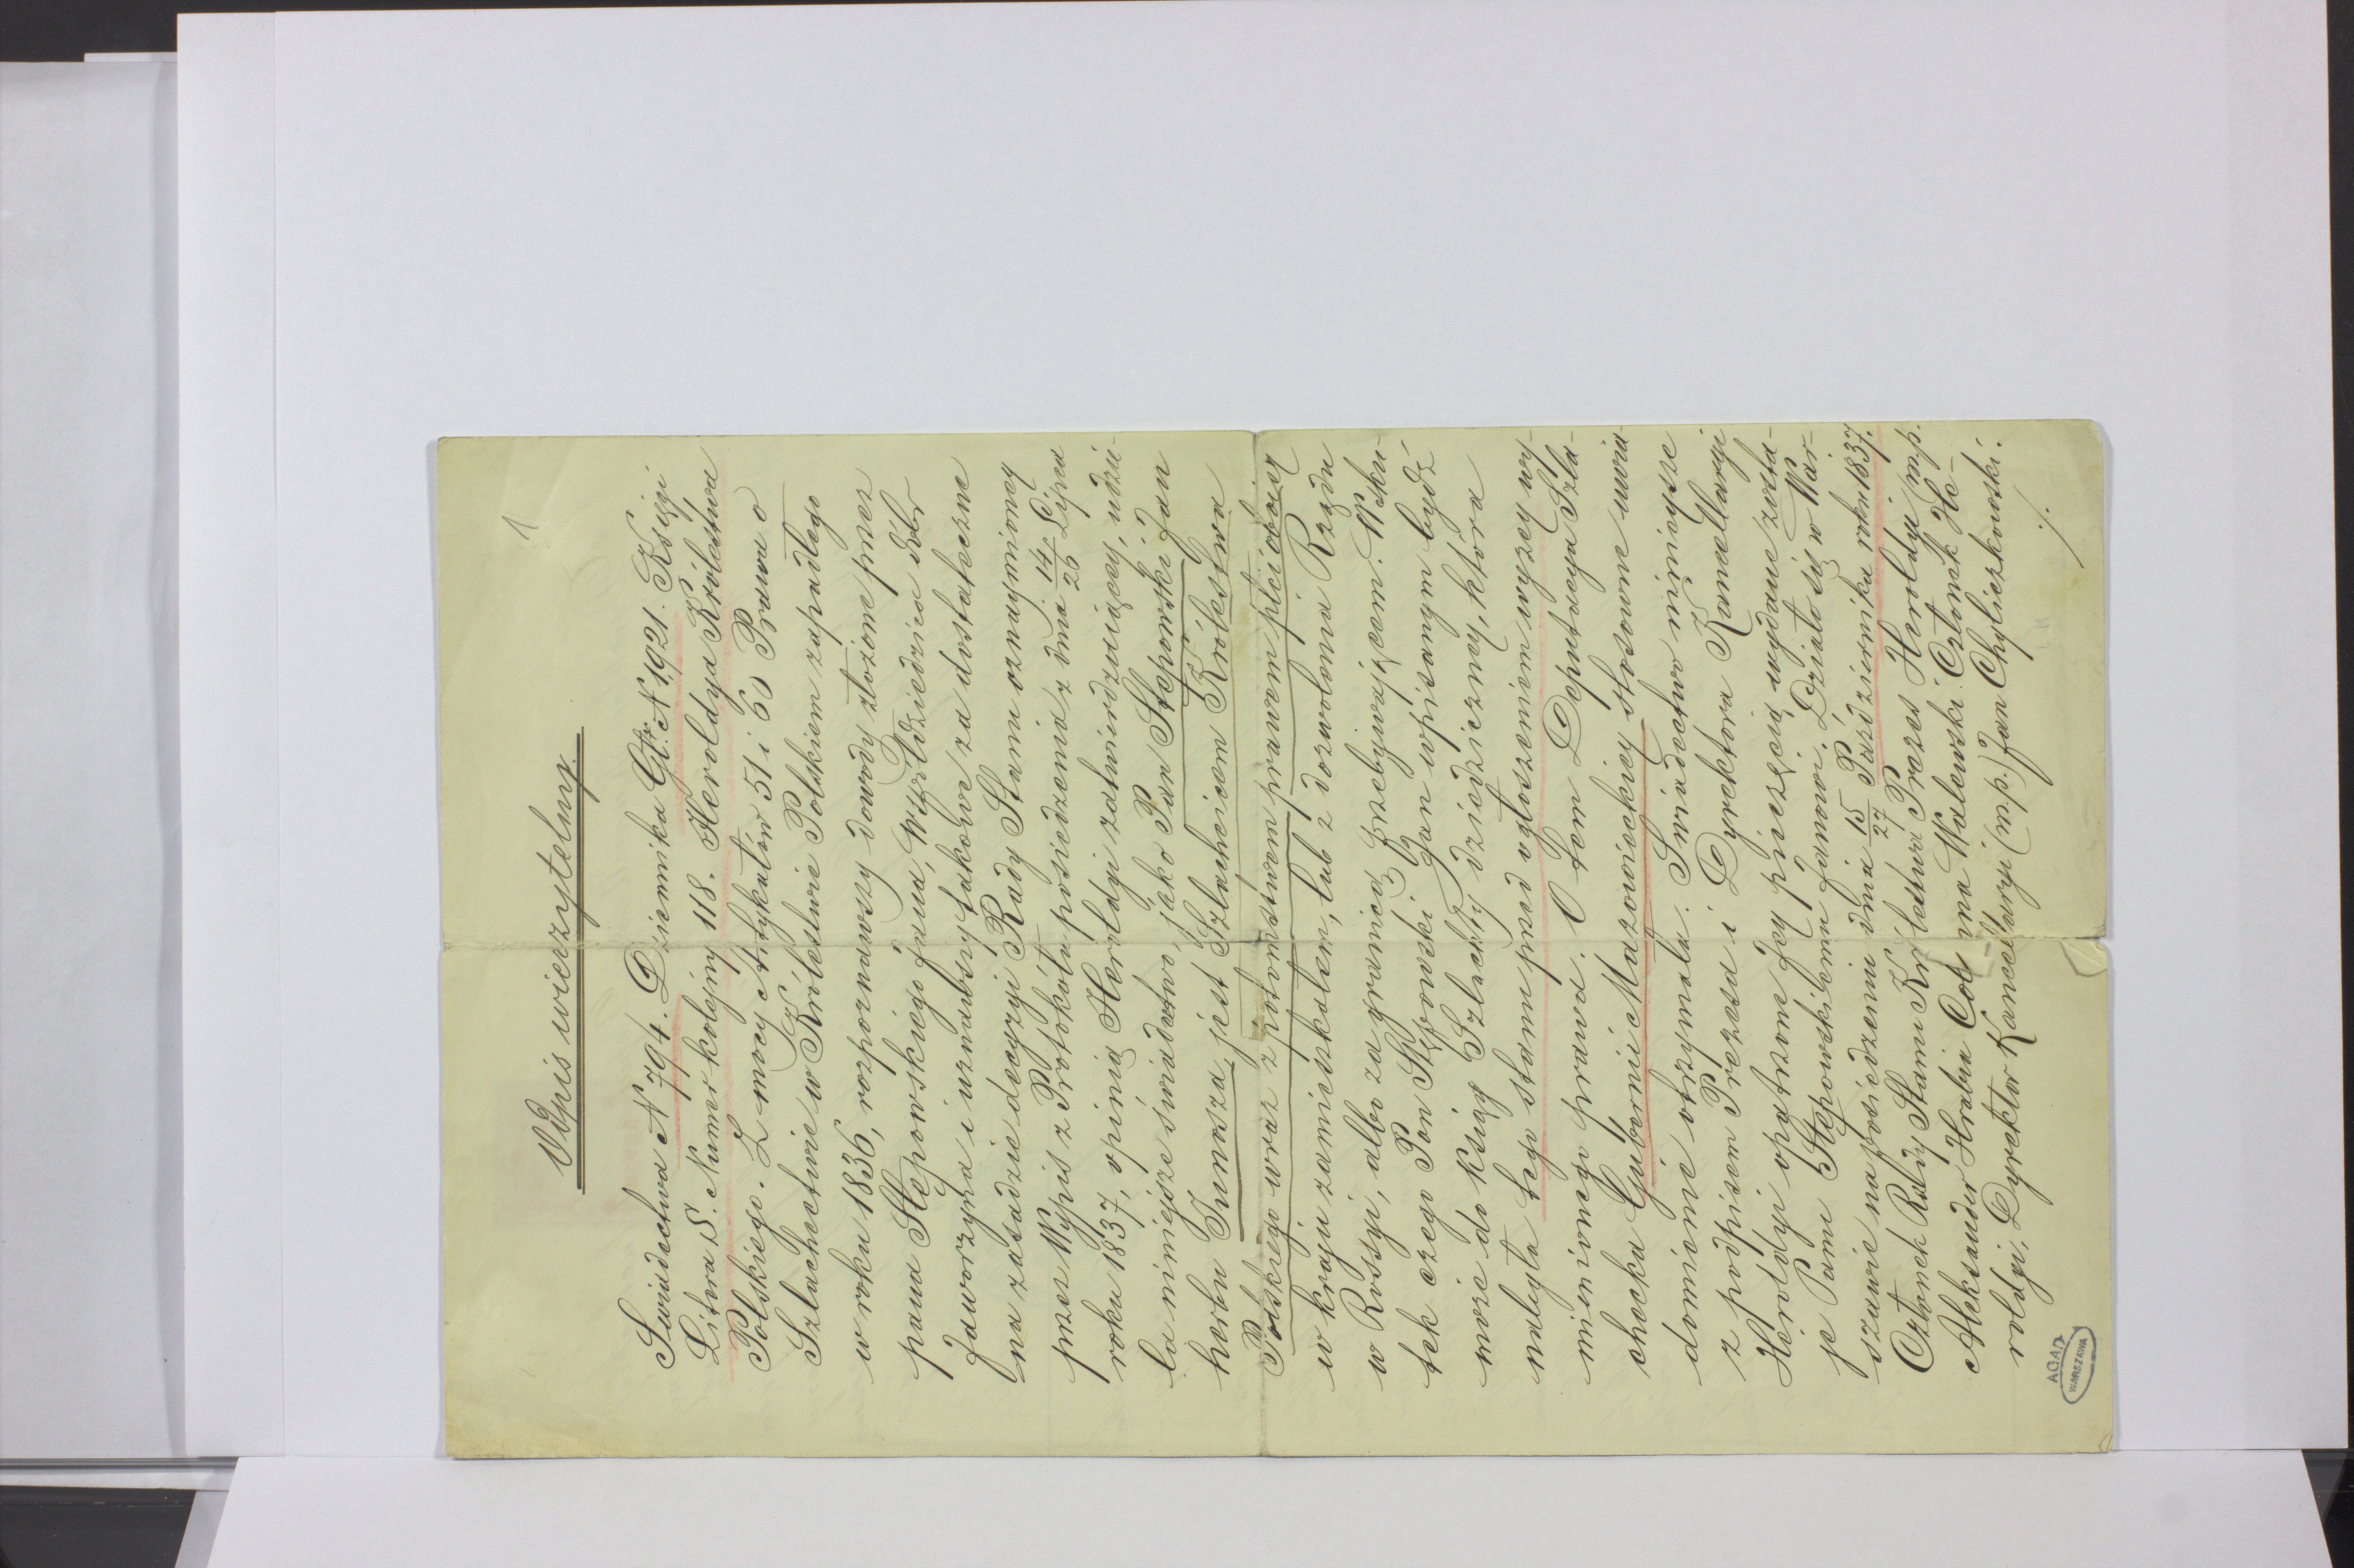 1
Wÿpis wierzytelny.
Swiadectwa N 794. Dziennika Gł: N. 1921. Księgi
Litera S. Numer kolejny 118. Heroldya Królestwa
Polskiego. Z mocy Artykułów 51 i 60 Prawa o
Szlachectwie w Królestwie Polskiem zapadłego
w roku 1836, rozpoznawszy dowody złożone przez
pana Stępowskiego Jana, Współdziedzica dóbr
Jaworzyna i uznawszy takowe za dostateczne
na zasadzie decyzyi Rady Stanu oznaymioney
przez Wypis z Protokółu posiedzenia z dnia 14/26 Lipca
roku 1837, opinią Heroldyi zatwierdzaiącey, udzie-
la niniejsze świadectwo, jako Pan Stępowski Jan
herbu Junosza jest Szlachcicem Królestwa
Polskiego wraz z potomstwem prawem płci obojej
w kraju zamieszkałem, lub z dozwolenia Rządu
w Rossyi, albo za granicą przebywającem. W sku-
tek czego Pan Stępowski Jan wpisanym bydź
może do Księgi Szlachty dziedziczney, która
należyta tego stanu przed ogłoszeniem wyżey wy-
mienionego prawa. O tem Deputacya Szla-
checka Gubernii Mazowieckiey stosowne uwia-
domienie otrzymała. Swiadectwo nineysze
z podpisem Prezesa i Dyrektora Kancellaryi
Heroldyi opatrzone Jey pieczęcią wydane zosta-
je Panu Stępowskiemu Janowi. Działo się w War-
szawie na posiedzeniu dnia 15/27 Października roku 1837.
Członek Rady Stanu Królestwa Prezes Heroldyi m.p.
Aleksander Hrabia Colonna Walewski Członek He-
roldyi, Dyrektor Kancellaryi (m.p.) Jan Chyliczkowski.
./.
AGAD
WARSZAWA